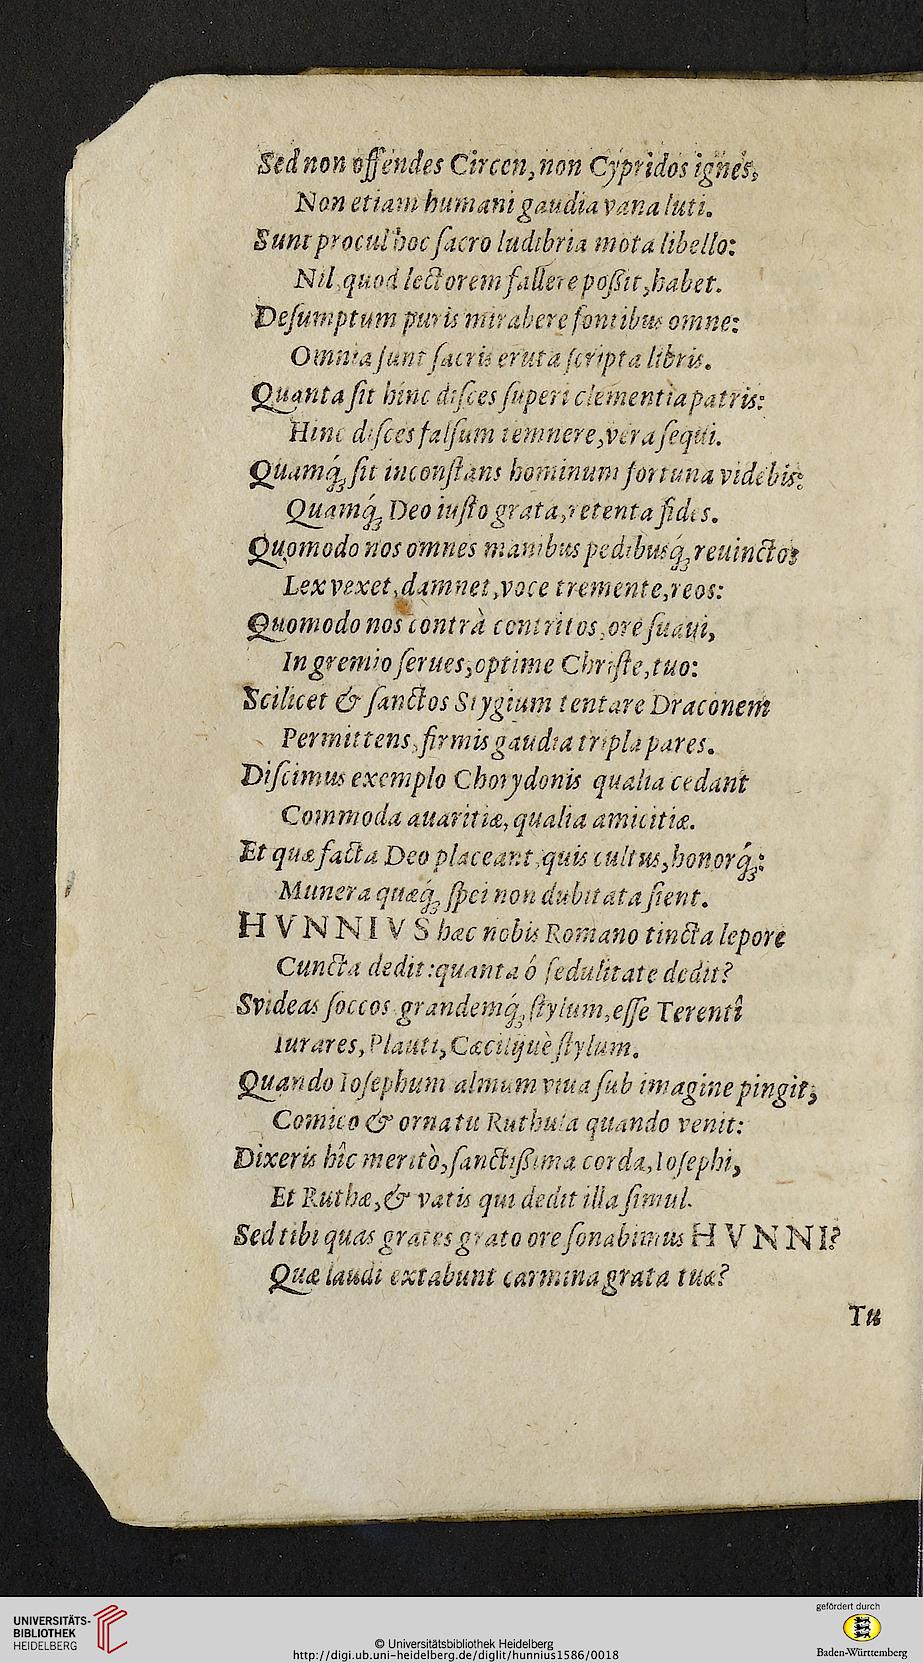 Sed non offendes Circen, non Cypridos ignes,
Non etiam humani gaudia vana luti.
Sunt procul hoc ſacro ludibria mota libello:
Nil, quod lectorem fallere poßit, habet.
Deſumptum puris mirabere fontibus omne:
Omnia ſunt ſacris eruta ſcripta libris.
Quanta ſit hinc diſces ſuperi clementia patris:
Hinc diſces falſum temnere, vera ſequi.
Quamq́ꝫ ſit inconſtans hominum fortuna videbis:
Quamq́ꝫ Deo iuſto grata, retenta fides.
Quomodo nos omnes manibus pedibusq́ꝫ reuinctos
Lex vexet, damnet, voce tremente, reos:
Quomodo nos contrà contritos, ore ſuaui,
In gremio ſerues, optime Chriſte, tuo:
Scilicet & ſanctos Stygium tentare Draconem
Permittens, firmis gaudia tripla pares.
Diſcimus exemplo Chorydonis qualia cedant
Commoda auaritiæ, qualia amicitiæ.
Et quæ facta Deo placeant, quis cultus, honorq́ꝫ:
Munera quæq́ꝫ ſpei non dubitata fient.
HVNNIVS hæc nobis Romano tincta lepore
Cuncta dedit: quanta ó ſedulitate dedit?
Svideas ſoccos grandemq́ꝫ ſtylum, eſſe Terentî
Iurares, Plauti, Cæcilijuè ſtylum.
Quando Ioſephum almum viua ſub imagine pingit,
Comico & ornatu Ruthula quando venit:
Dixeris hîc meritò, ſanctißima corda, Ioſephi,
Et Ruthæ, & vatis qui dedit illa ſimul.
Sed tibi quas grates grato ore ſonabimus HVNNI?
Quæ laudi extabunt carmina grata tuæ?
Tu
UNIVERSITÄTS-
BIBLIOTHEK
HEIDELBERG
© Universitätsbibliothek Heidelberg
http://digi.ub.uni-heidelberg.de/diglit/hunnius1586/0018
gefördert durch
Baden-Württemberg